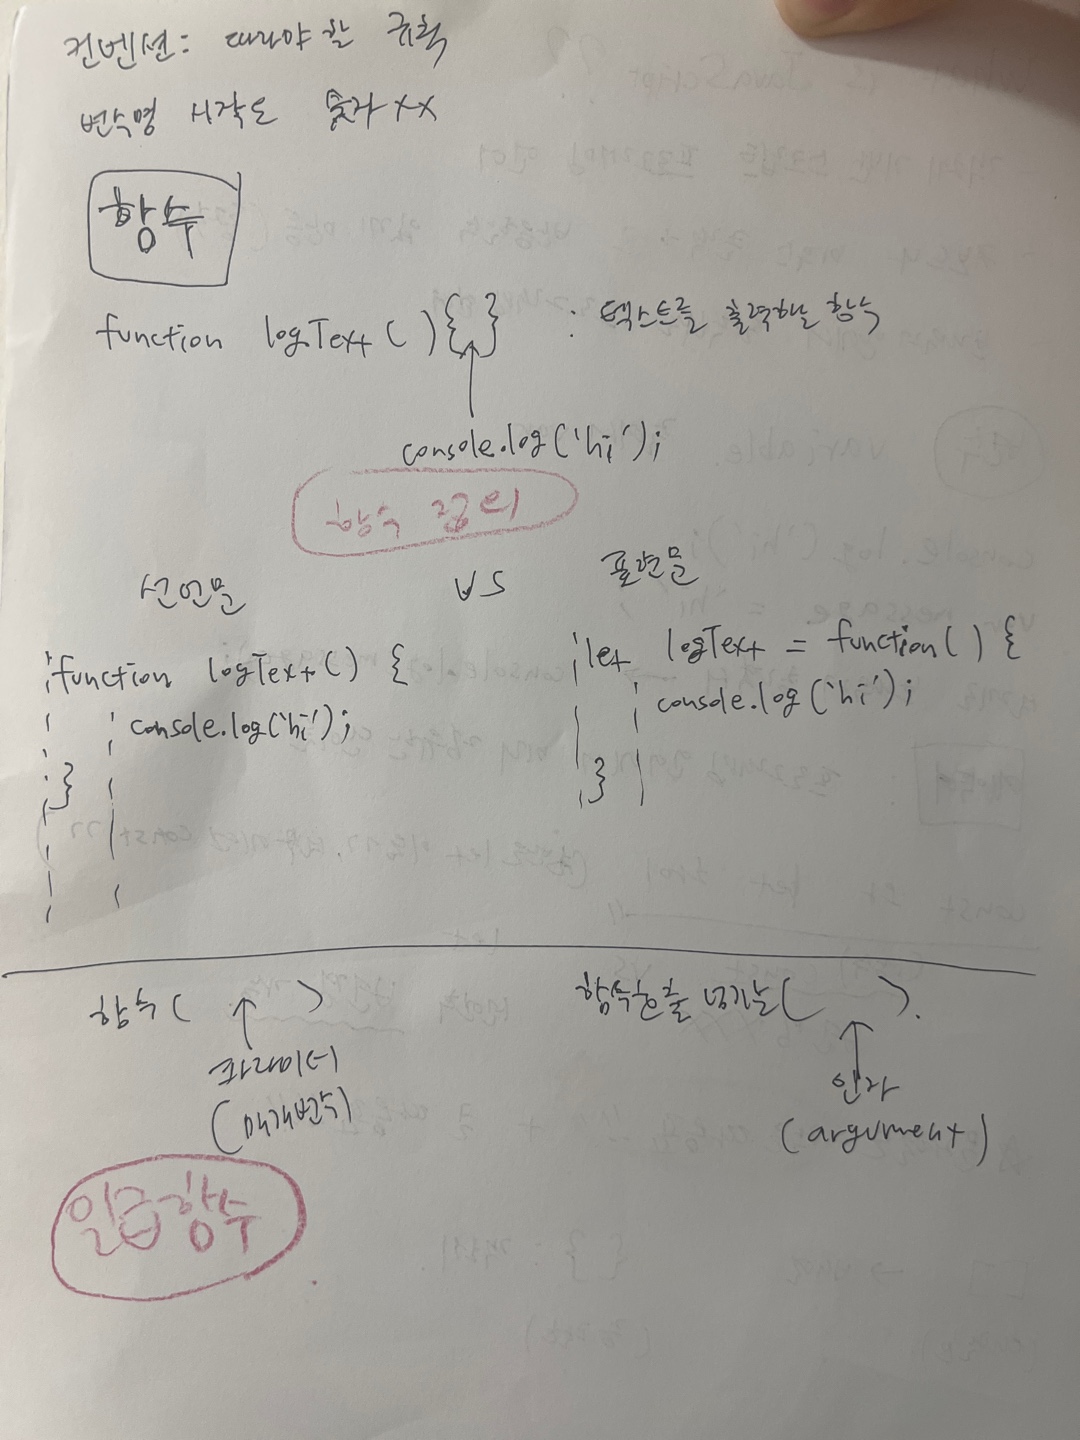 컨벤션: 따라야 할 규칙
변수명 시작도 숫자 XX
함수
function logText ( ) { } : 텍스트를 출력하는 함수
console.log('hi');
함수 정의
선언문 VS 표현문
function logText ( ) {
console.log('hi');
}
let logText = function ( ) {
console.log('hi');
}
함수 ( )
파라미터
(매개변수)
함수호출 ( ).
인자
(argument)
일급함수